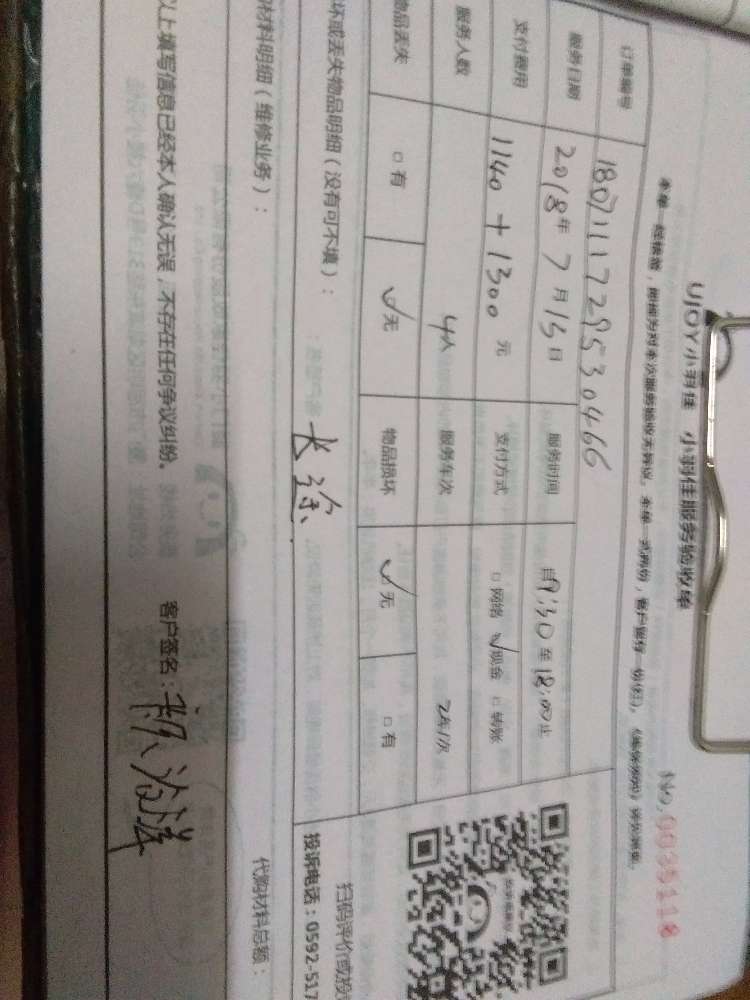 UJOY小羽佳 小羽佳服务验收单
No.0035118
订单编号 1807111729530466
服务日期 2018年7月15日 服务时间 自9:30至18:00止
支付费用 1140+1300元 支付方式 □网络 ✓现金 □转账
服务人数 4人 服务车次 2车1次
物品丢失 □有 ✓无 物品损坏 ✓无 □有
坏或丢失物品明细（没有可不填）：
长途
扫码评价或投
投诉电话：0592-517
材料明细（维修业务）：
代购材料总额：
以上填写信息已经本人确认无误，不存在任何争议纠纷。 客户签名：